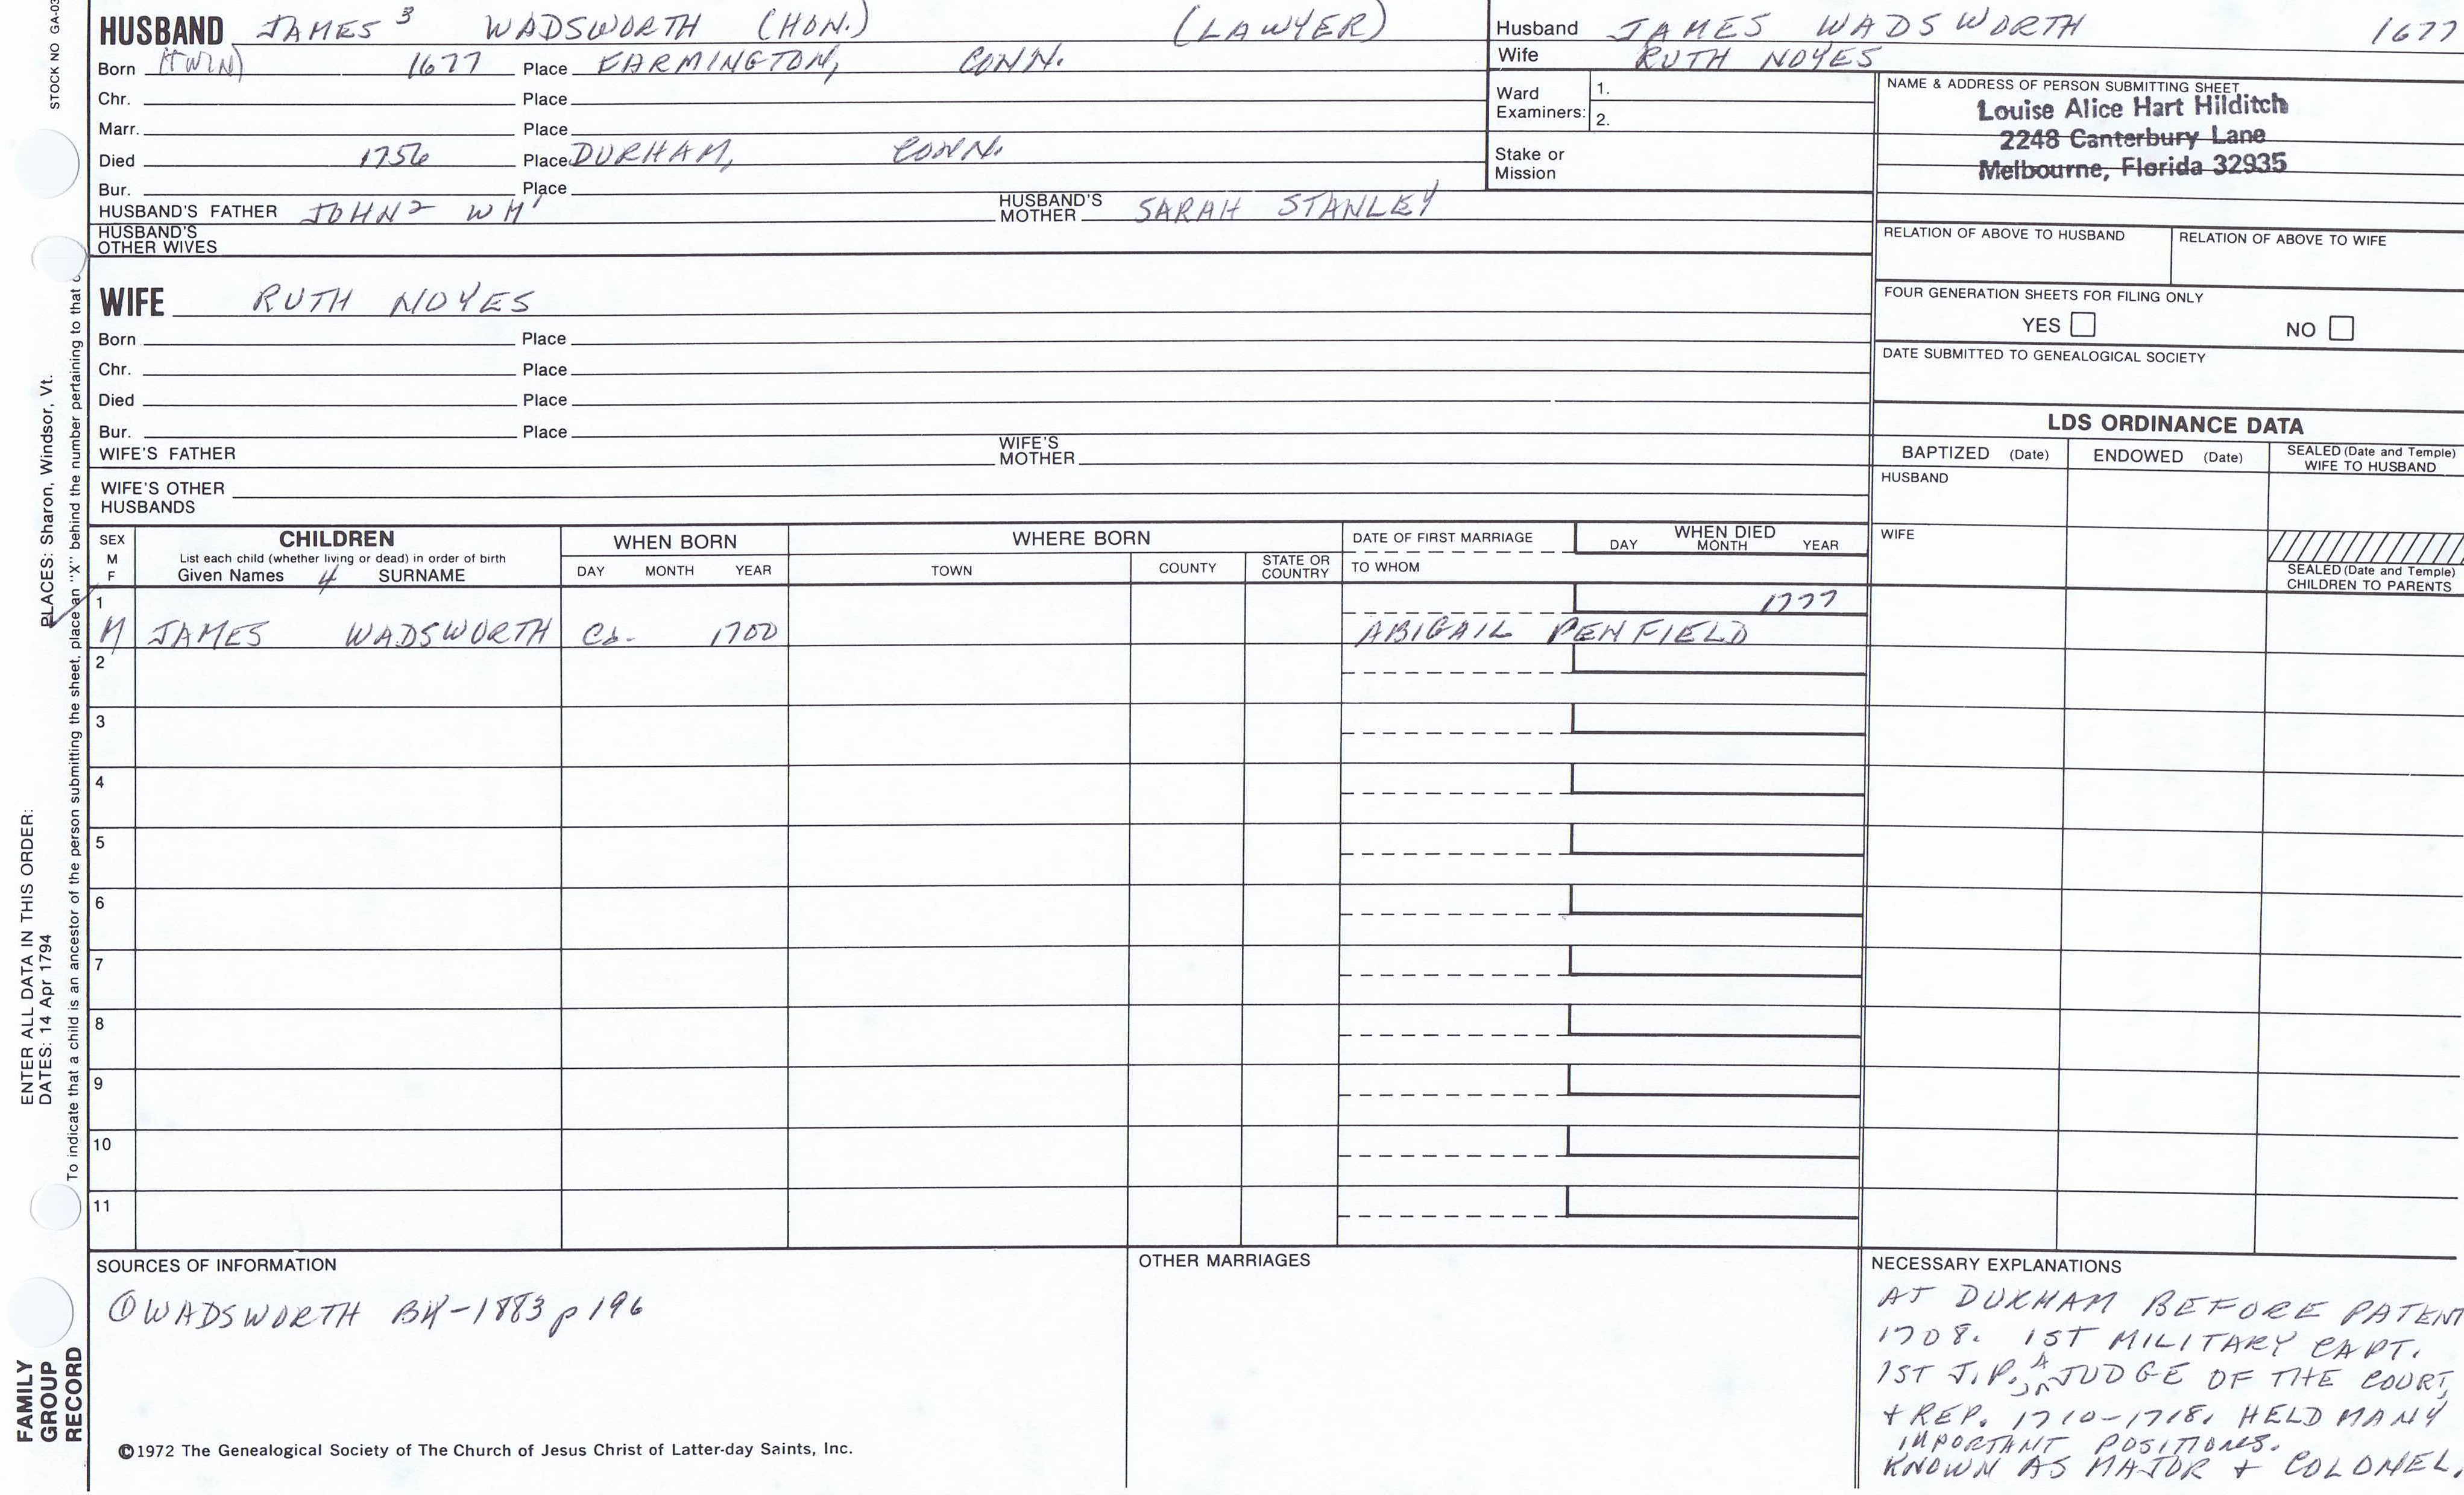 STOCK NO GA-03
HUSBAND JAMES 3 WADSWORTH (HON.) (LAWYER)
Born (TWIN) 1677 Place FARMINGTON, CONN.
Chr. Place
Marr. Place
Died 1756 Place DURHAM, CONN.
Bur. Place
HUSBAND'S FATHER JOHN 2 WM 1 HUSBAND'S MOTHER SARAH STANLEY
HUSBAND'S
OTHER WIVES
Husband JAMES WADSWORTH 1677
Wife RUTH NOYES
Ward
Examiners: 1.
2.
Stake or
Mission
NAME & ADDRESS OF PERSON SUBMITTING SHEET
Louise Alice Hart Hilditch
2248 Canterbury Lane
Melbourne, Florida 32935
RELATION OF ABOVE TO HUSBAND RELATION OF ABOVE TO WIFE
FOUR GENERATION SHEETS FOR FILING ONLY
YES NO
DATE SUBMITTED TO GENEALOGICAL SOCIETY
WIFE RUTH NOYES
Born Place
Chr. Place
Died Place
Bur. Place
WIFE'S FATHER WIFE'S MOTHER
WIFE'S OTHER
HUSBANDS
LDS ORDINANCE DATA
BAPTIZED (Date) ENDOWED (Date) SEALED (Date and Temple)
WIFE TO HUSBAND
HUSBAND
WIFE
SEALED (Date and Temple)
CHILDREN TO PARENTS
SEX
M
F
CHILDREN
List each child (whether living or dead) in order of birth
Given Names 4 SURNAME
WHEN BORN
DAY MONTH YEAR
WHERE BORN
TOWN COUNTY STATE OR COUNTRY
DATE OF FIRST MARRIAGE
TO WHOM
WHEN DIED
DAY MONTH YEAR
1 1777
M JAMES WADSWORTH Ca. 1700 ABIGAIL PENFIELD
2
3
4
5
6
7
8
9
10
11
SOURCES OF INFORMATION
① WADSWORTH BK-1883 p 196
OTHER MARRIAGES
NECESSARY EXPLANATIONS
AT DURHAM BEFORE PATENT
1708. 1ST MILITARY CAPT.
1ST J.P., A JUDGE OF THE COURT,
+ REP. 1710-1718. HELD MANY
IMPORTANT POSITIONS.
KNOWN AS MAJOR + COLONEL.
©1972 The Genealogical Society of The Church of Jesus Christ of Latter-day Saints, Inc.
FAMILY
GROUP
RECORD
ENTER ALL DATA IN THIS ORDER:
DATES: 14 Apr 1794 PLACES: Sharon, Windsor, Vt.
To indicate that a child is an ancestor of the person submitting the sheet, place an "X" behind the number pertaining to that c